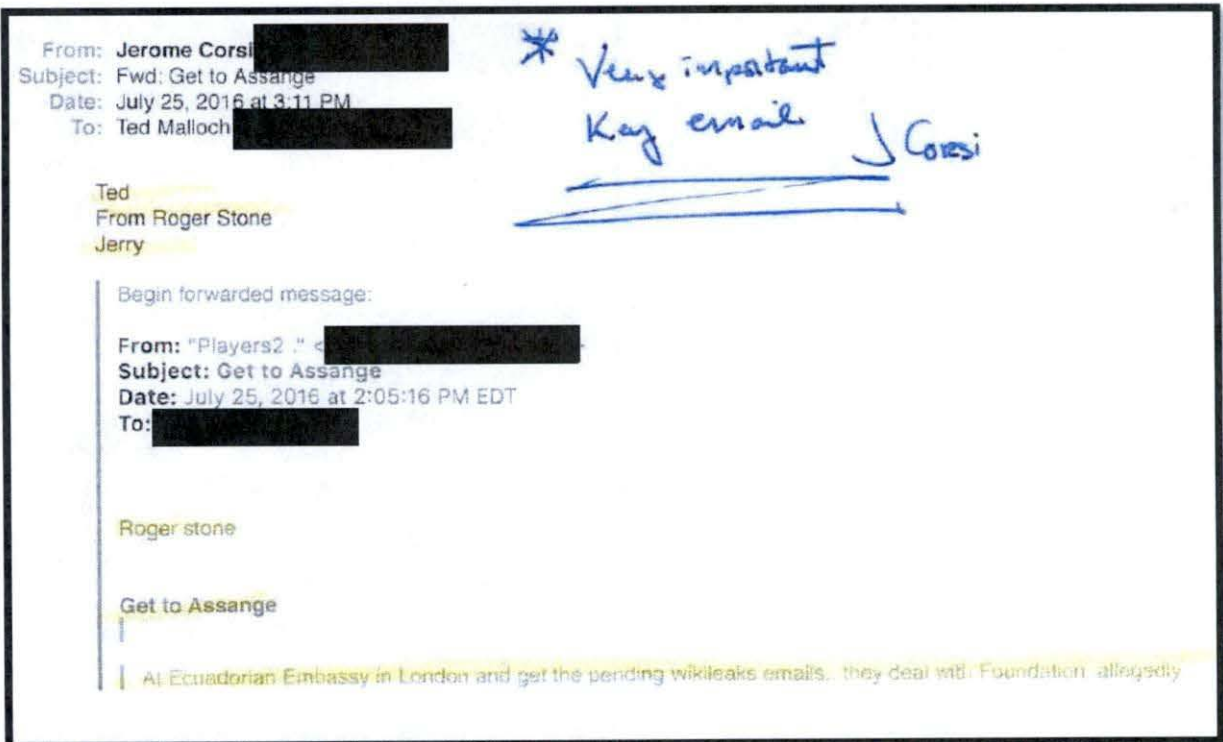 From: Jerome Corsi
Subject: Fwd: Get to Assange
Date: July 25, 2016 at 3:11 PM
To: Ted Malloch
* Very important
Key email
J Corsi
Ted
From Roger Stone
Jerry
Begin forwarded message:
From: "Players2 ." <
Subject: Get to Assange
Date: July 25, 2016 at 2:05:16 PM EDT
To:
Roger stone
Get to Assange
At Ecuadorian Embassy in London and get the pending wikileaks emails.. they deal with Foundation, allegedly